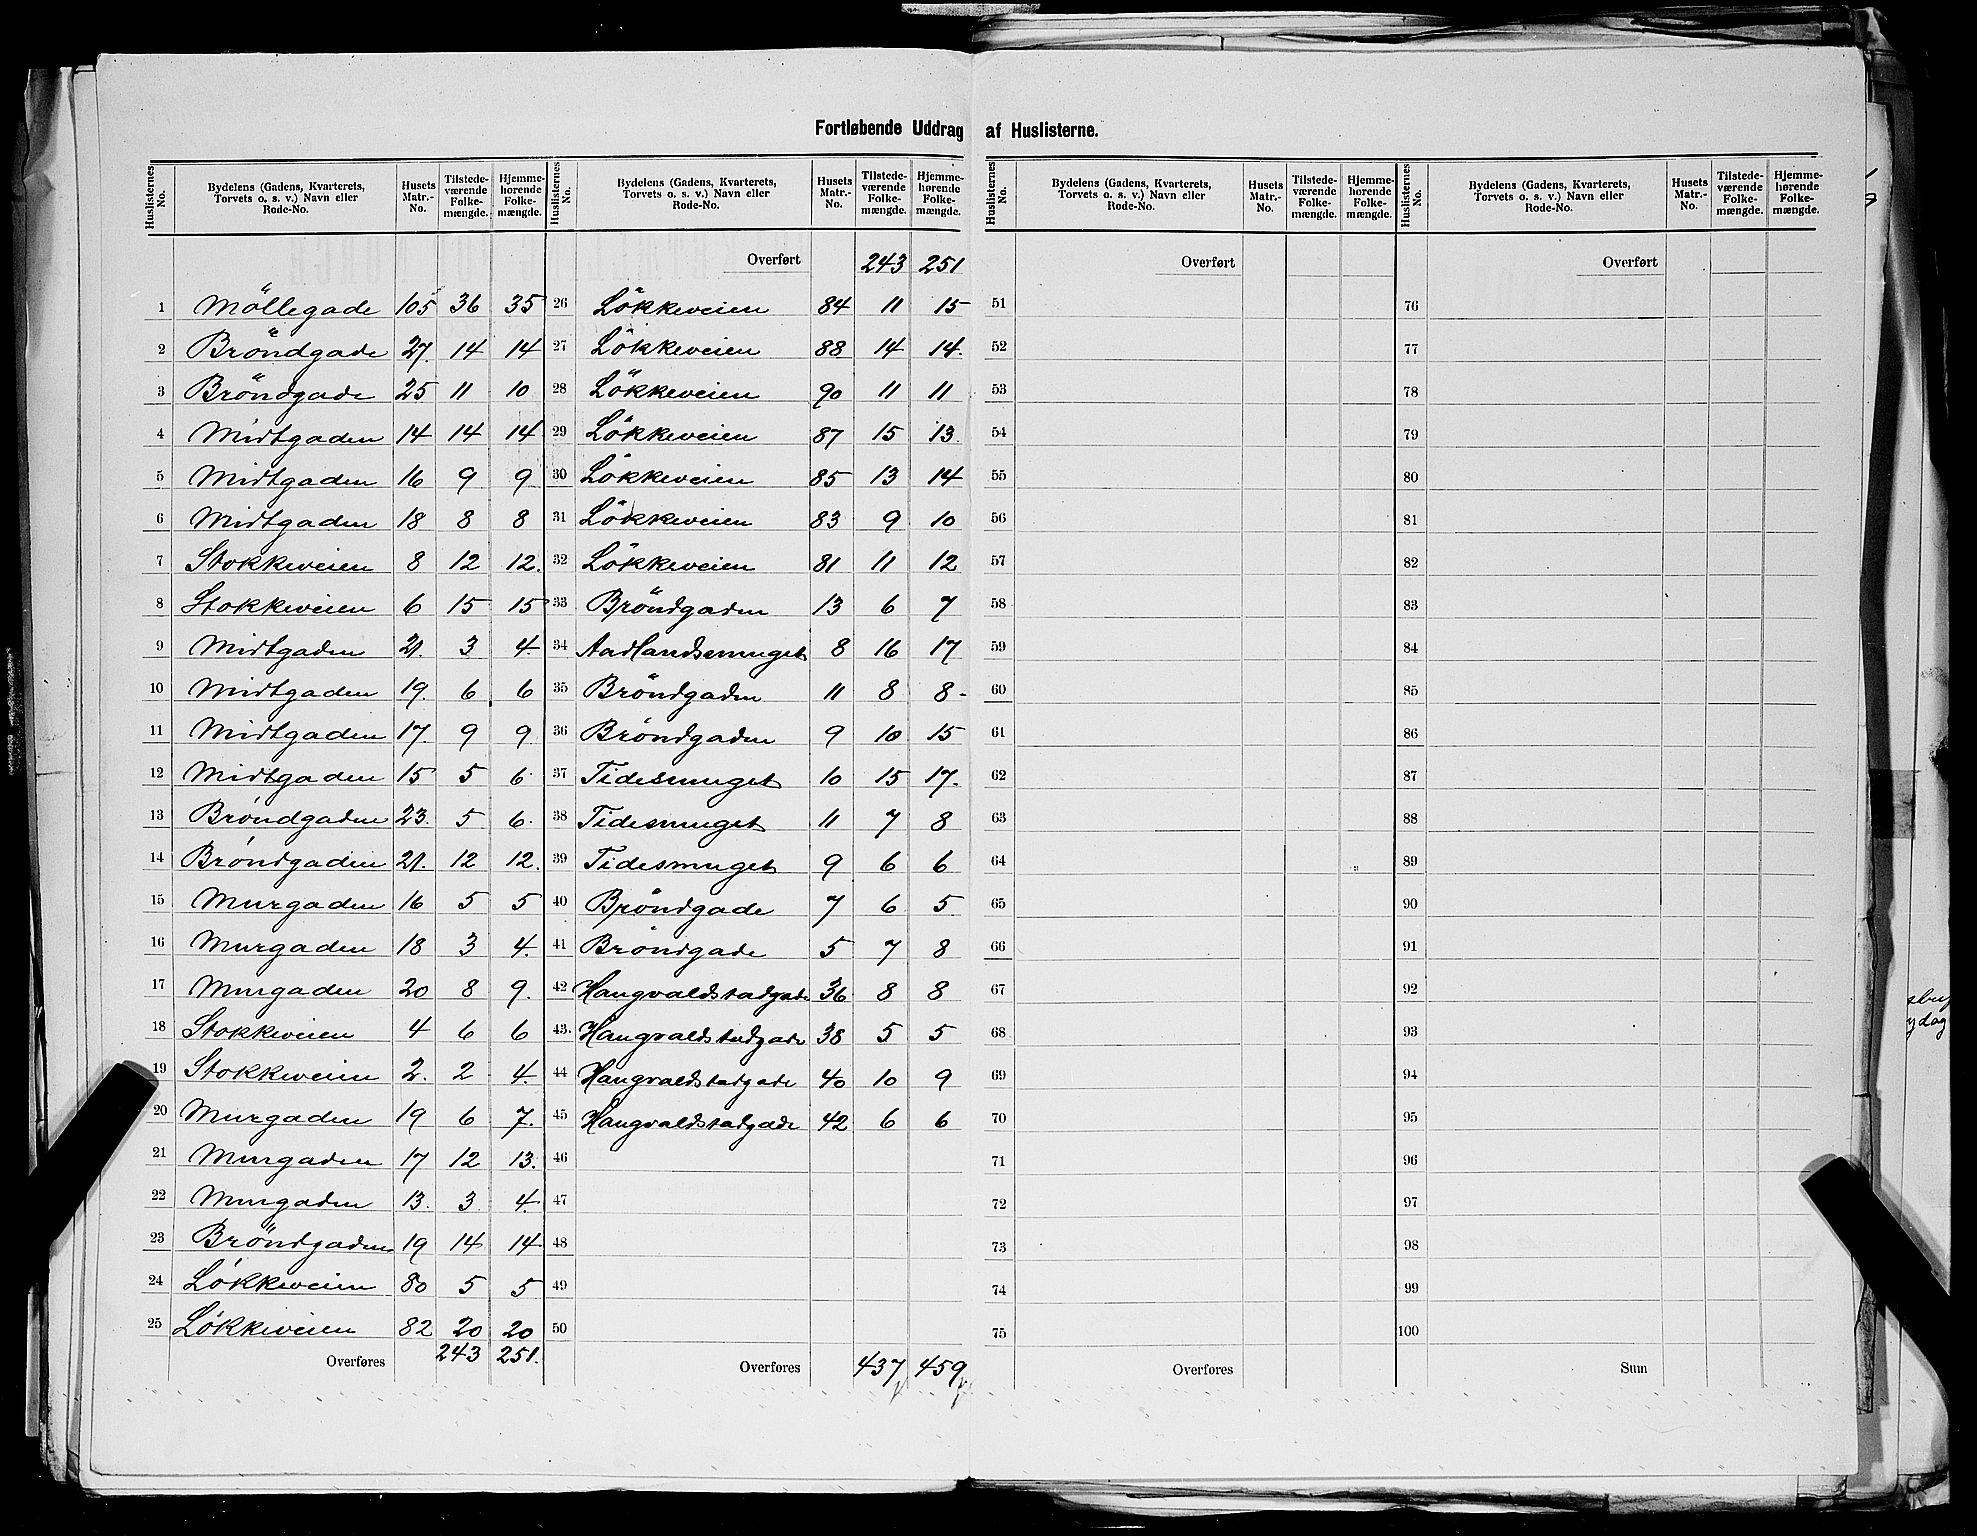 Fortløbende Uddrag af Huslisterne.
Huslisternes No. | Bydelens (Gadens, Kvarterets, Torvets o. s. v.) Navn eller Rode-No. | Husets Matr.-No. | Tilstedeværende Folkemængde. | Hjemmehørende Folkemængde.
1 Möllegade 105 36 35
2 Bröndgade 27. 14 14
3 Bröndgade 25 11 10
4 Midtgaden 14 14 14
5 Midtgaden 16 9 9
6 Midtgaden 18 8 8
7 Stokkeveien 8 12 12.
8 Stokkeveien 6 15 15
9 Midtgaden 21. 3 4.
10 Midtgaden 19. 6 6
11 Midtgaden 17. 9 9
12 Midtgaden 15 5 6
13 Bröndgaden 23. 5 6.
14 Bröndgaden 21. 12 12.
15 Murgaden 16 5 5
16 Murgaden 18 3 4.
17 Murgaden 20 8 9.
18 Stokkeveien 4 6 6
19 Stokkeveien 2. 2 4.
20 Murgaden 19 6 7.
21 Murgaden 17 12 13.
22 Murgaden 13. 3 4.
23 Bröndgaden 19 14 14
24 Lökkeveien 80 5 5
25 Lökkeveien 82 20 20
Overføres 243 251.
Huslisternes No. | Bydelens (Gadens, Kvarterets, Torvets o. s. v.) Navn eller Rode-No. | Husets Matr.-No. | Tilstedeværende Folkemængde. | Hjemmehørende Folkemængde.
Overført 243 251
26 Lökkeveien 84 11 15
27 Lökkeveien 88 14 14.
28 Lökkeveien 90 11 11
29 Lökkeveien 87 15 13.
30 Lökkeveien 85 13 14
31 Lökkeveien 83 9 10
32 Lökkeveien 81 11 12
33 Bröndgaden 13 6 7
34 Aadlandsmuget 8 16 17
35 Bröndgaden 11 8 8
36 Bröndgaden 9 10 15
37 Tidesmuget 10 15 17.
38 Tidesmuget 11 7 8
39 Tidesmuget 9 6 6
40 Bröndgade 7 6 5
41 Bröndgade 5 7 8
42 Haugvaldstadgade 36 8 8
43. Haugvaldstadgade 38 5 5
44 Haugvaldstadgade 40 10 9
45 Haugvaldstadgade 42 6 6
46
47
48
49
50
Overføres 437 459
Huslisternes No. | Bydelens (Gadens, Kvarterets, Torvets o. s. v.) Navn eller Rode-No. | Husets Matr.-No. | Tilstedeværende Folkemængde. | Hjemmehørende Folkemængde.
Overført
51
52
53
54
55
56
57
58
59
60
61
62
63
64
65
66
67
68
69
70
71
72
73
74
75
Overføres
Huslisternes No. | Bydelens (Gadens, Kvarterets, Torvets o. s. v.) Navn eller Rode-No. | Husets Matr.-No. | Tilstedeværende Folkemængde. | Hjemmehørende Folkemængde.
Overført
76
77
78
79
80
81
82
83
84
85
86
87
88
89
90
91
92
93
94
95
96
97
98
99
100
Sum